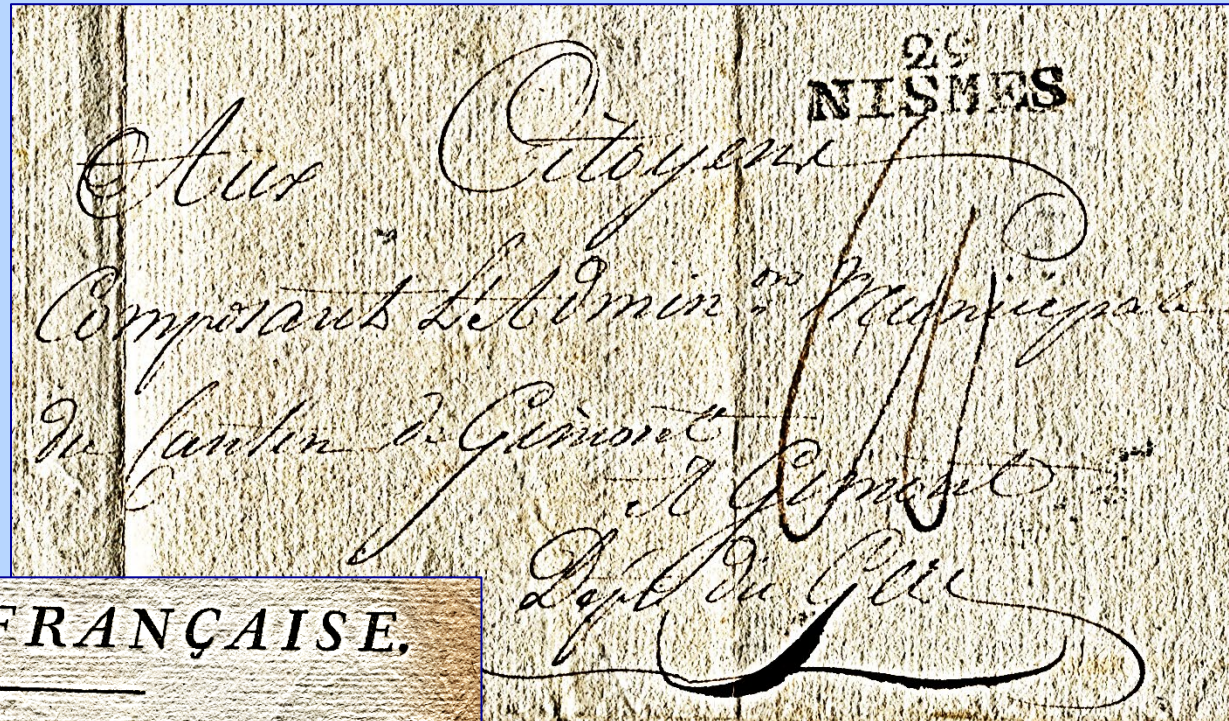 29
NISMES
Aux Citoyens
Composants L'Admin.on Municipale
du Canton de Gimont
A Gimont
Dépt du Gers
FRANÇAISE.